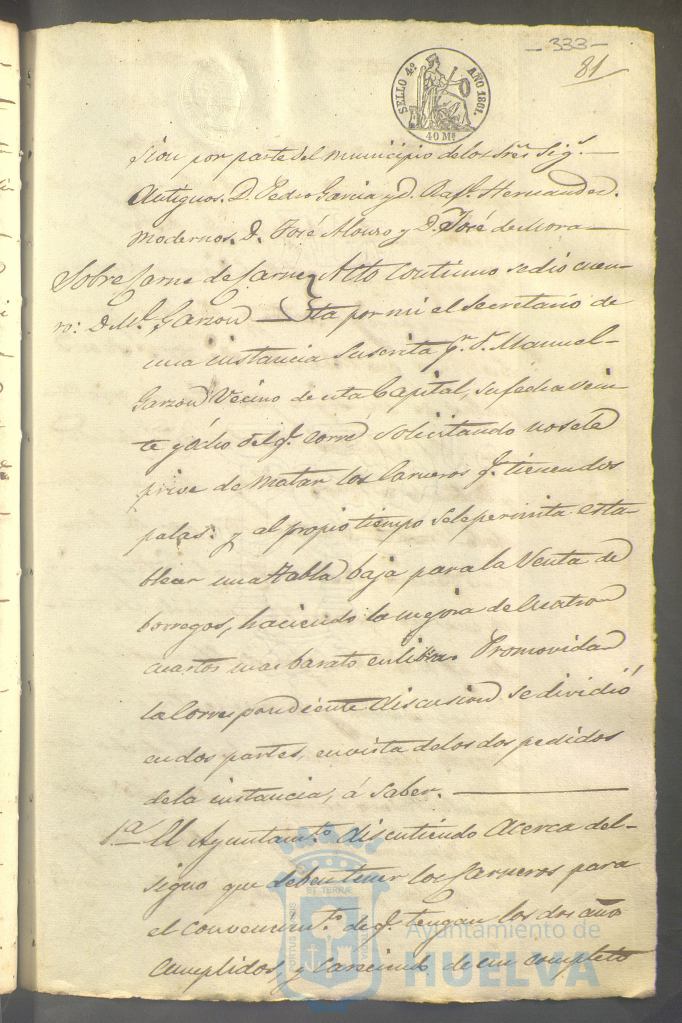 - 333 -
81
SELLO 4º AÑO 1861.
40 Ms
sion por parte del municipio de los Sres. Sigs.
Antiguos. D. Pedro Garcia y D. Rafl. Hernandez.
Modernos. D. José Mouro y D. José de Mora
Sobre Carne de Carne-
ro: D. Ml. Garzon
Acto Continuo se dió cuen-
ta por mi el Secretario de
una instancia Suscrita pr. D. Manuel
Garzon Vecino de esta Capital, su fecha vein-
te y ocho del qe. corre Solicitando no se le
prive de matar los Carneros qe. tienen dos
palas: y al propio tiempo se le permita esta-
blecer una tabla baja para la Venta de
borregos, haciendo la mejora de Cuatro
cuartos mas barato en libra. Promovida
la Correspondiente discusion se dividió
en dos partes, en vista de los dos pedidos
de la instancia, á Saber.
1a. El Ayuntamto. discutiendo Acerca del
signo que deben tener los Carneros para
el convencimto. de qe. tengan los dos años
Cumplidos, y Careciendo de un completo
Ayuntamiento de
HUELVA